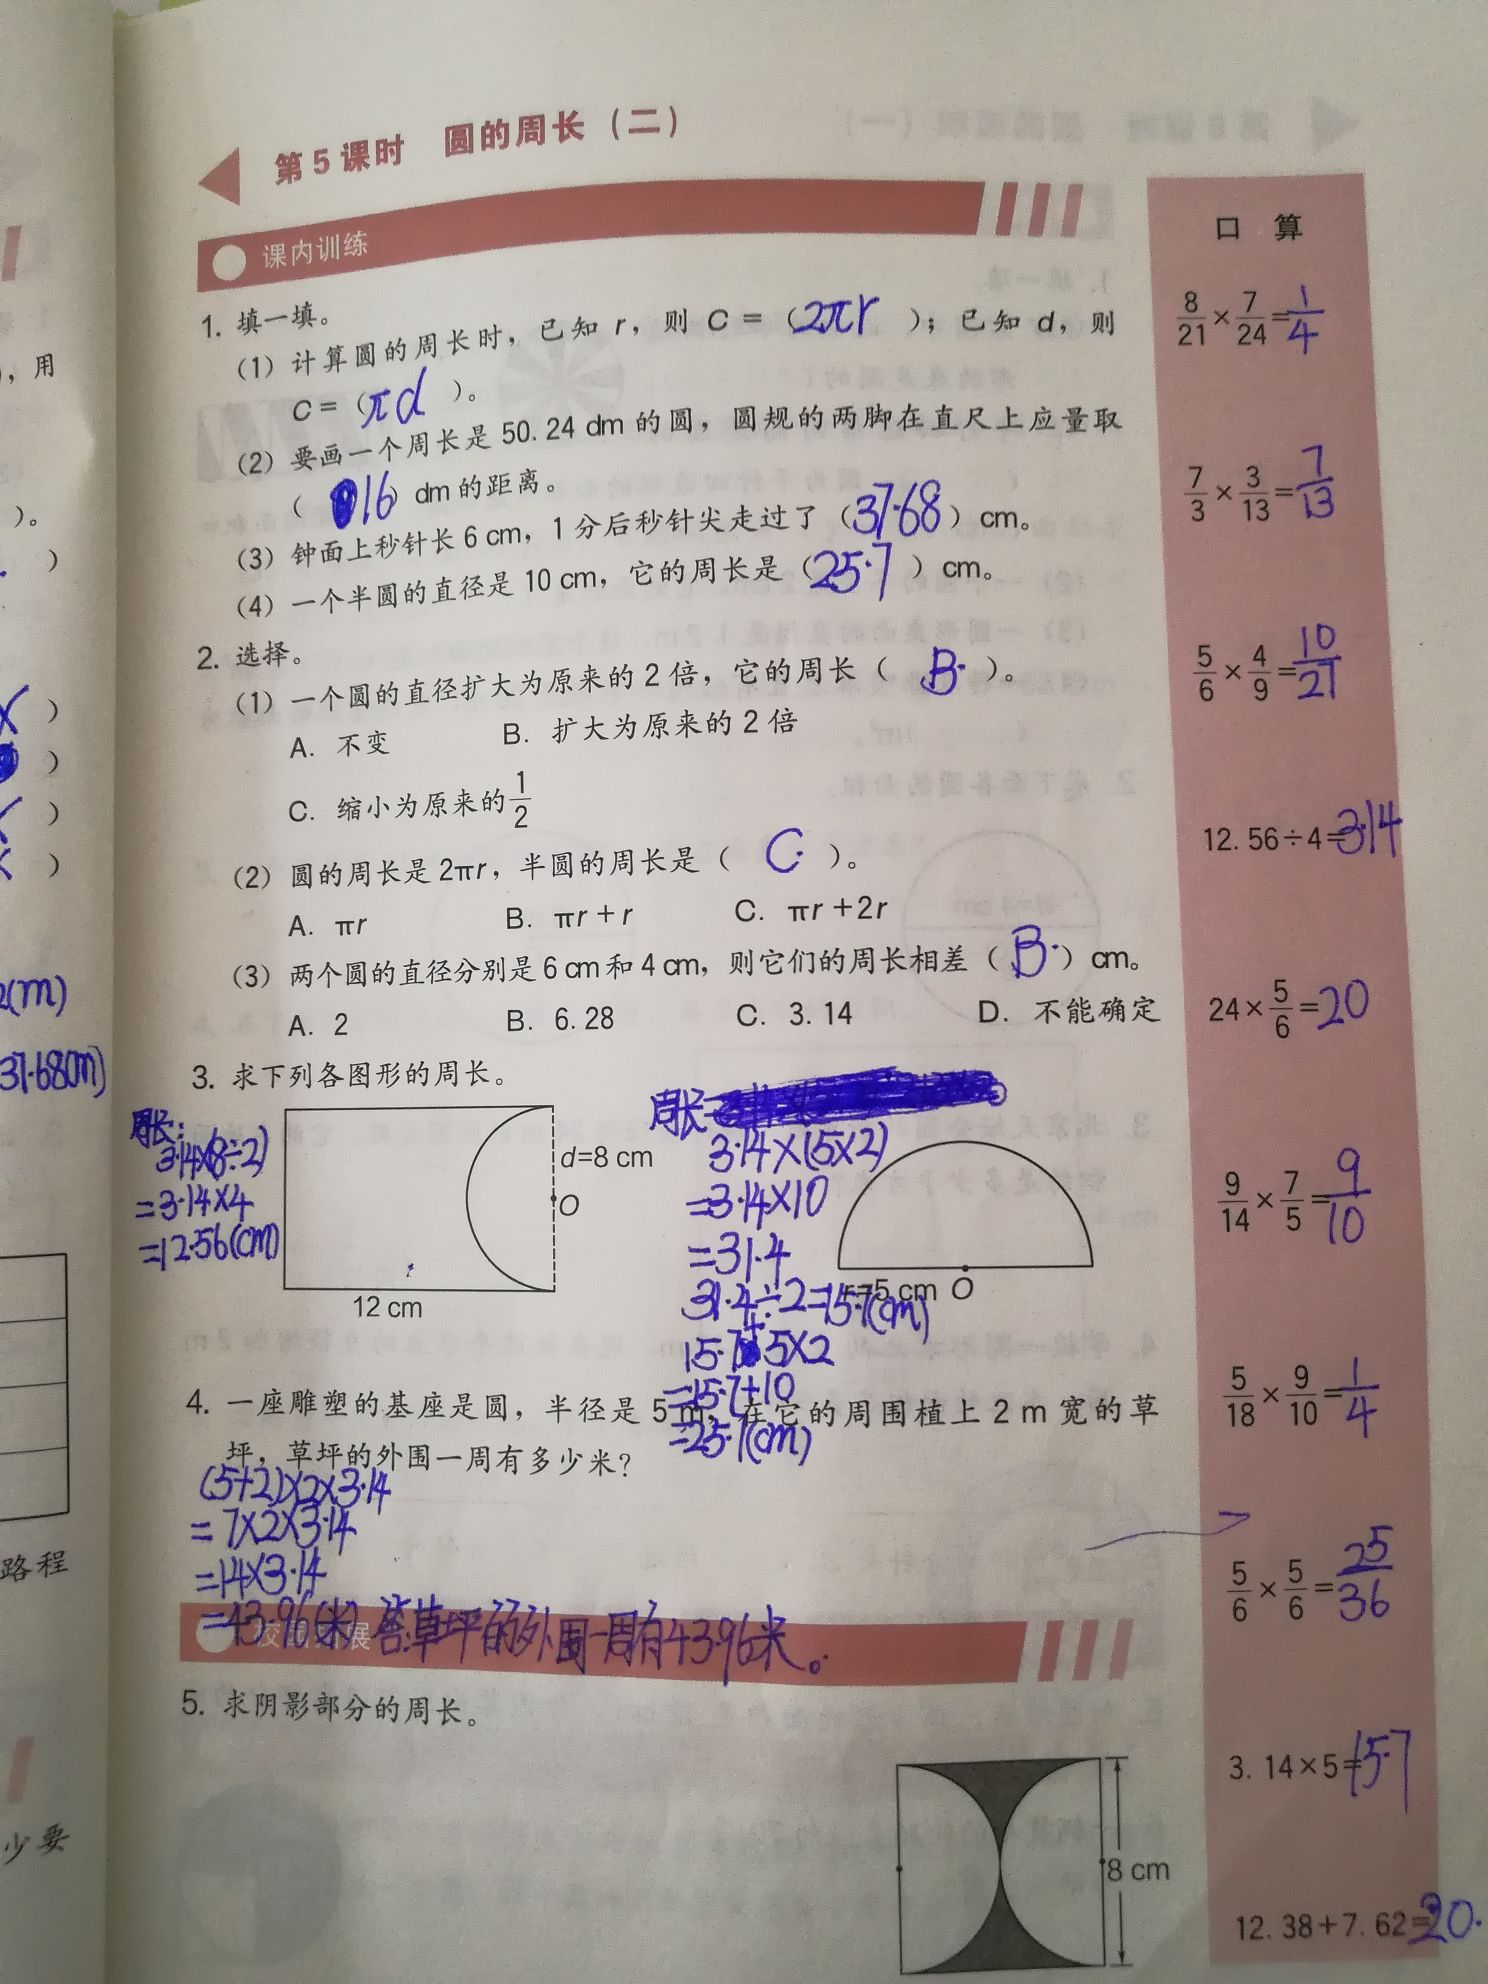 第5课时 圆的周长(二)
课内训练
1. 填一填。
(1) 计算圆的周长时，已知 r，则 C =（2πr）；已知 d，则
C =（πd）。
(2) 要画一个周长是 50.24 dm 的圆，圆规的两脚在直尺上应量取
（16）dm 的距离。
(3) 钟面上秒针长 6 cm，1 分后秒针尖走过了（37.68）cm。
(4) 一个半圆的直径是 10 cm，它的周长是（25.7）cm。
2. 选择。
(1) 一个圆的直径扩大为原来的 2 倍，它的周长（B.）。
A. 不变 B. 扩大为原来的 2 倍
C. 缩小为原来的 1/2
(2) 圆的周长是 2πr，半圆的周长是（C.）。
A. πr B. πr + r C. πr + 2r
(3) 两个圆的直径分别是 6 cm 和 4 cm，则它们的周长相差（B.）cm。
A. 2 B. 6.28 C. 3.14 D. 不能确定
3. 求下列各图形的周长。
周长:
3.14×(8÷2)
=3.14×4
=12.56(cm)
d=8 cm
O
12 cm
周长
3.14×(5×2)
=3.14×10
=31.4
31.4÷2=15.7(cm)
15.7+5×2
=15.7+10
=25.7(cm)
r=5 cm O
4. 一座雕塑的基座是圆，半径是 5 m，在它的周围植上 2 m 宽的草
坪，草坪的外围一周有多少米?
(5+2)×2×3.14
=7×2×3.14
=14×3.14
=43.96(米) 答:草坪的外围一周有43.96米。
展
5. 求阴影部分的周长。
8 cm
口 算
8/21 × 7/24 = 1/4
7/3 × 3/13 = 7/13
5/6 × 4/9 = 10/27
12.56÷4=3.14
24 × 5/6 = 20
9/14 × 7/5 = 9/10
5/18 × 9/10 = 1/4
5/6 × 5/6 = 25/36
3.14×5=15.7
12.38+7.62=20.
，用
)。
)
)
)
)
)
2(m)
37.68(m)
路程
少要